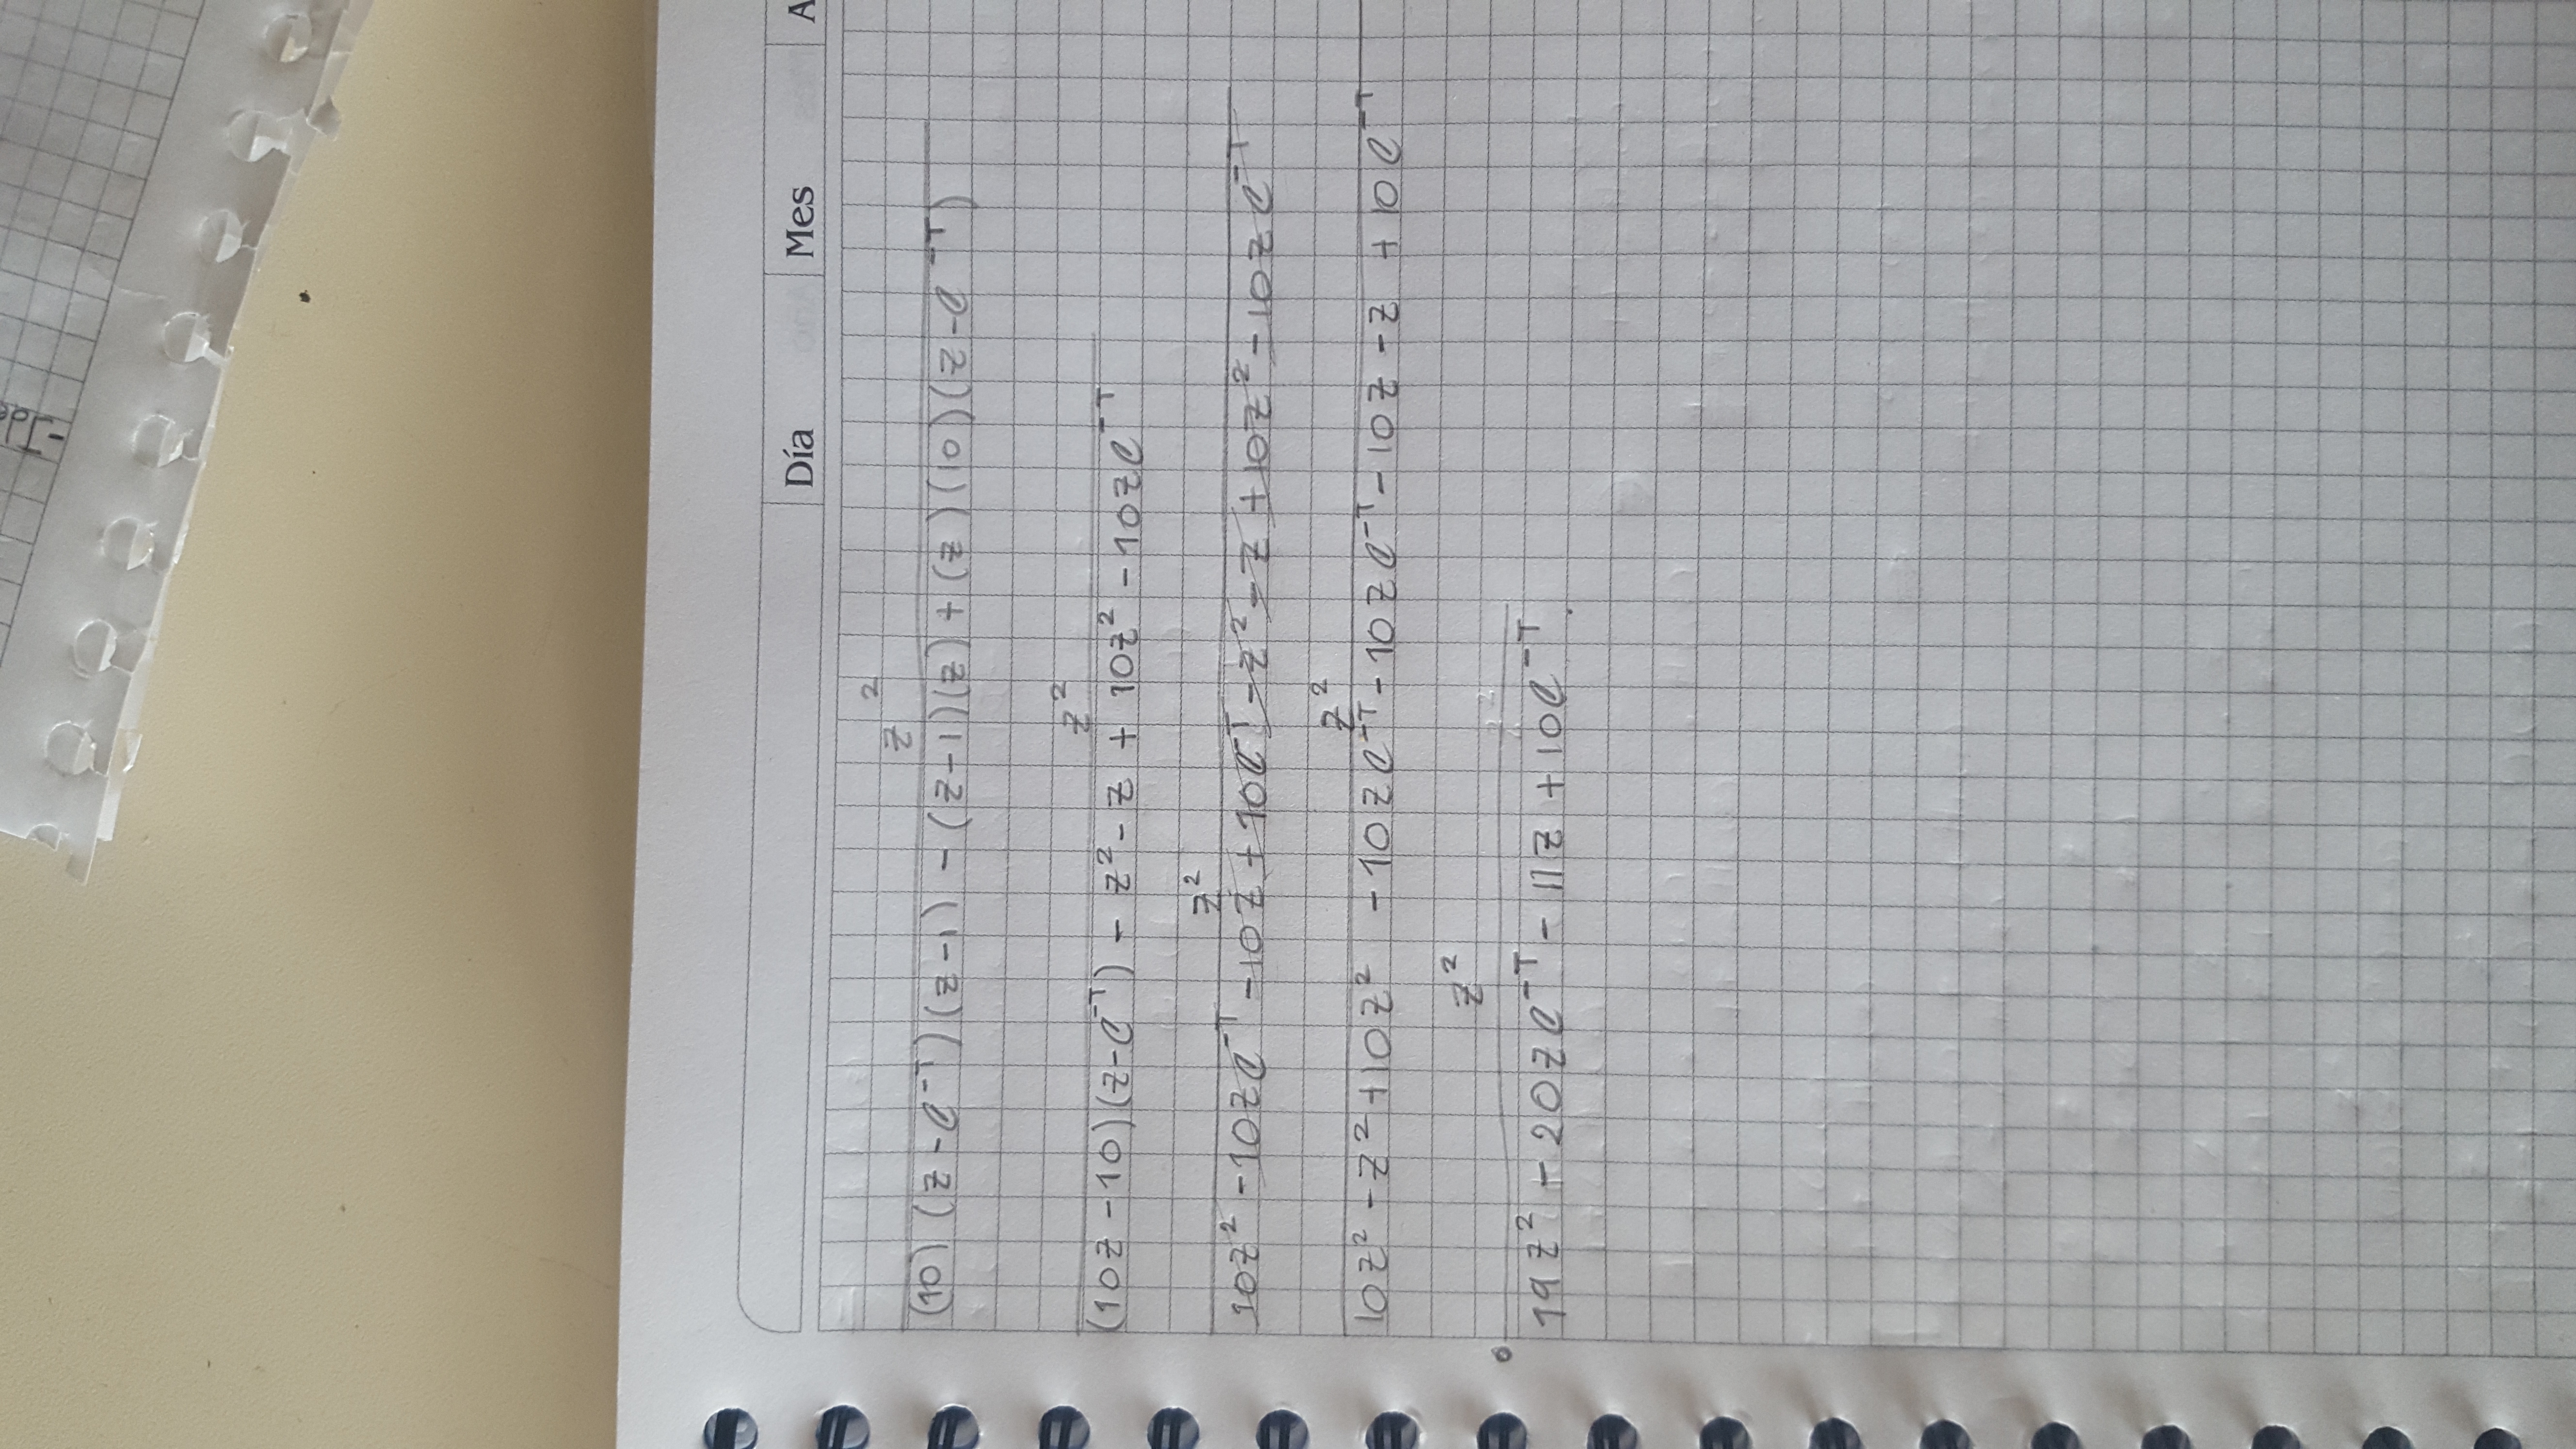 -Ide
Día Mes A
z²
(10) (z-e⁻ᵀ)(z-1) - (z-1)(z) + (z)(10)(z-e⁻ᵀ)
z²
(10z-10)(z-e⁻ᵀ) - z² - z + 10z² - 10ze⁻ᵀ
z²
10z² - 10ze⁻ᵀ - 10z + 10e⁻ᵀ - z² - z + 10z² - 10ze⁻ᵀ
z²
10z² - z² + 10z² - 10ze⁻ᵀ - 10ze⁻ᵀ - 10z - z + 10e⁻ᵀ
z²
19z² - 20ze⁻ᵀ - 11z + 10e⁻ᵀ.